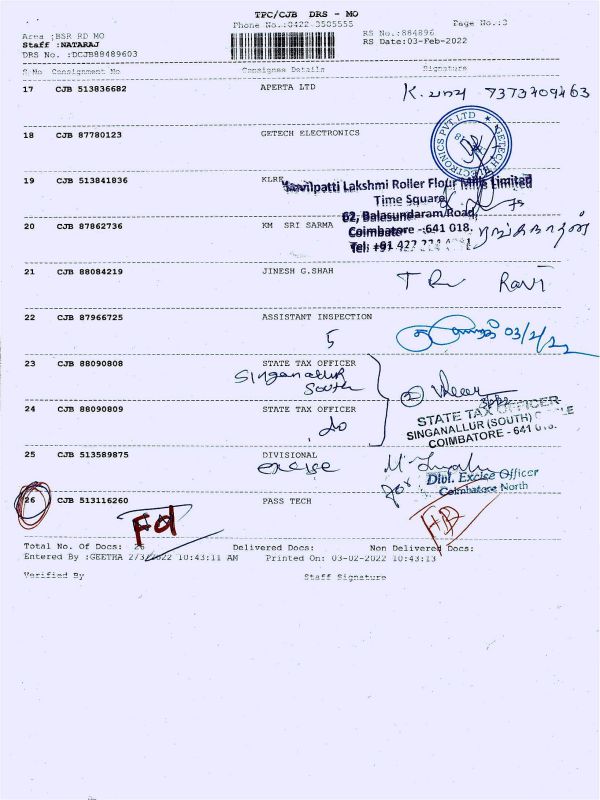 TPC/CJB DRS - MO
Phone No.:0422-3505555
Page No.:3
Area :BSR RD MO
RS No.:884896
Staff :NATARAJ
RS Date:03-Feb-2022
DRS No. :DCJB88489603
S No Consignment No Consignee Details Signature
17 CJB 513836682 APERTA LTD K. 7373709463
18 CJB 87780123 GETECH ELECTRONICS
GETECH ELECTRONICS PVT LTD
19 CJB 513841836 KLRF
Kovilpatti Lakshmi Roller Flour Mills Limited
Time Square
62, Balasundaram Road,
20 CJB 87862736 KM SRI SARMA
Coimbatore - 641 018.
Tel: +91 422
21 CJB 88084219 JINESH G.SHAH T R Ravi
22 CJB 87966725 ASSISTANT INSPECTION
5 03/2/22
23 CJB 88090808 STATE TAX OFFICER
Singanallur
South
24 CJB 88090809 STATE TAX OFFICER
do
STATE TAX OFFICER
SINGANALLUR (SOUTH) CIRCLE
COIMBATORE - 641
25 CJB 513589875 DIVISIONAL
excise
for Divl. Excise Officer
Coimbatore North
26 CJB 513116260 PASS TECH
Fd
Total No. Of Docs: 26 Delivered Docs: Non Delivered Docs:
Entered By :GEETHA 2/3/2022 10:43:11 AM Printed On: 03-02-2022 10:43:13
Verified By Staff Signature